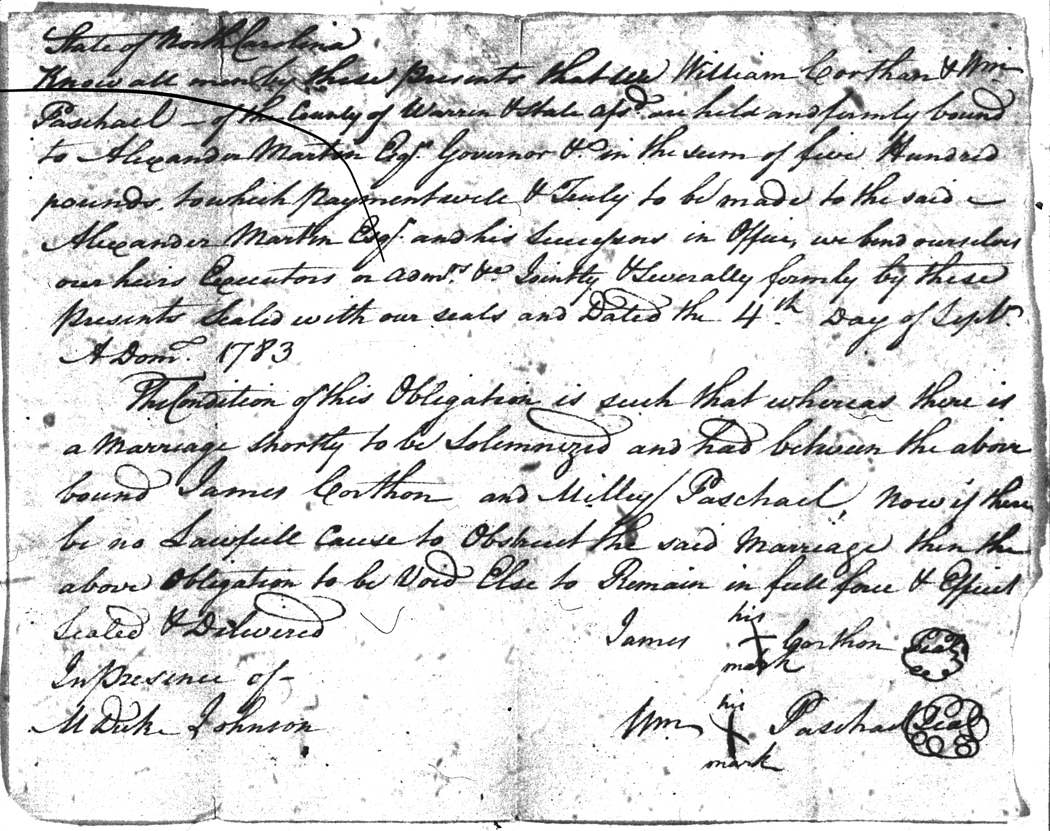 State of North Carolina
Know all men by these presents that we William Corthan & Wm
Paschael – of the County of Warren & State afsd. are held and firmly bound
to Alexander Martin Esqr. Governor &c in the sum of five Hundred
pounds, to which Payment well & Truly to be made to the said –
Alexander Martin Esqr. and his Successors in Office, we bind ourselves
our heirs Executors or admrs. &c Jointly & Severally firmly by these
presents Sealed with our seals and Dated the 4th Day of Sept.
A Dom. 1783
The Condition of this Obligation is such that whereas there is
a Marriage shortly to be Solemnized and had between the above
bound James Corthon and Milley Paschael, Now if there
be no Lawfull Cause to Obstruct the said Marriage then the
above Obligation to be Void Else to Remain in full force & Effect
Sealed & Delivered
In presence of –
M Duke Johnson
James his X mark Corthon Seal
Wm his X mark Paschael Seal